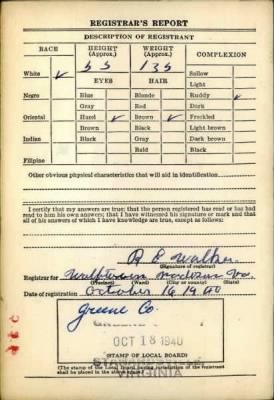 REGISTRAR'S REPORT
DESCRIPTION OF REGISTRANT
RACE HEIGHT (Approx.) WEIGHT (Approx.) COMPLEXION
White ✓ 5 5 135 Sallow
Light
EYES HAIR
Negro Blue Blonde Ruddy ✓
Gray Red Dark
Oriental Hazel ✓ Brown ✓ Freckled
Brown Black Light brown
Indian Black Gray Dark brown
Bald Black
Filipino
Other obvious physical characteristics that will aid in identification
I certify that my answers are true; that the person registered has read or has had
read to him his own answers; that I have witnessed his signature or mark and that
all of his answers of which I have knowledge are true, except as follows:
R E Walker
(Signature of registrar)
Registrar for Va.
(Precinct) (Ward) (City or county) (State)
Date of registration October 16 1940
Greene Co.
OCT 18 1940
(STAMP OF LOCAL BOARD)
STANARDSVILLE
VIRGINIA
(The stamp of the Local Board having jurisdiction of the registrant
shall be placed in the above space.)